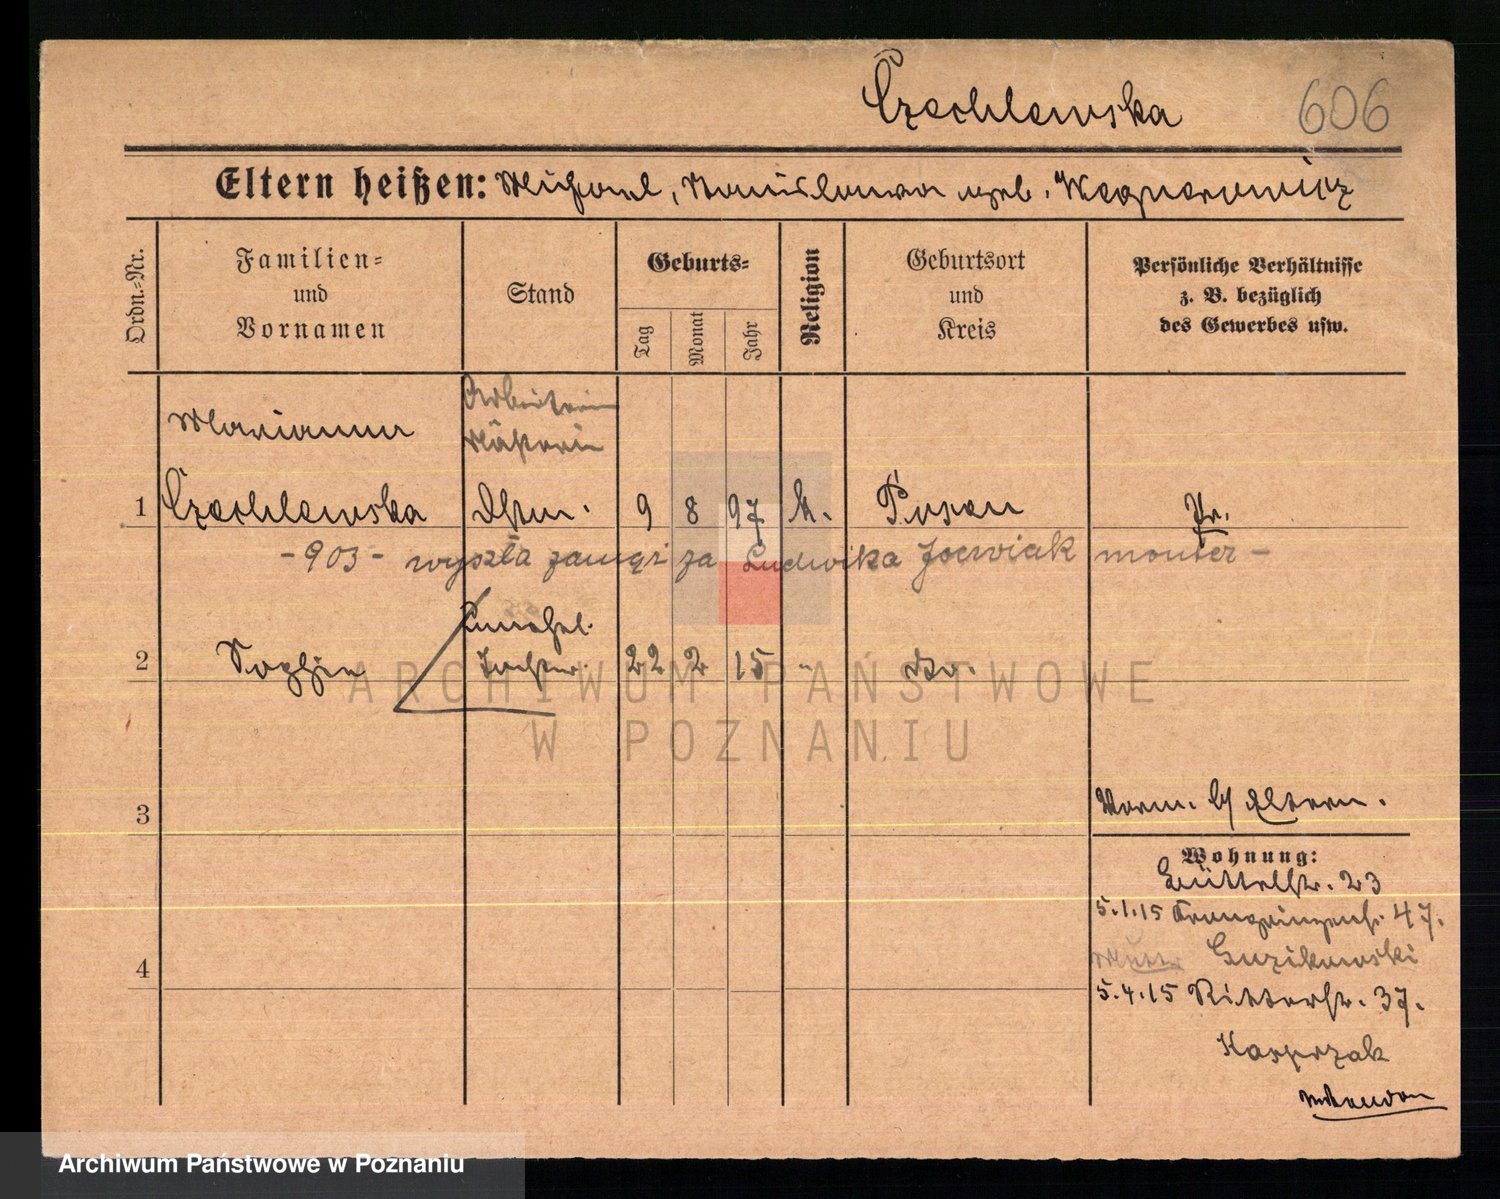 Czechlewska 606
Eltern heißen: Michael, Stanislawa geb. Kasperowicz
Ordn.=Nr.
Familien=
und
Vornamen
Stand
Geburts=
Tag
Monat
Jahr
Religion
Geburtsort
und
Kreis
Persönliche Verhältnisse
z. B. bezüglich
des Gewerbes usw.
Arbeiterin
Marianna Näherin
1 Czechlewska 9 8 97 k. Posen Pr.
-903- wyszła zamąż za Ludwika Joswiak monter -
Unehel.
2 Sophia Tochter 22 2 15 " do.
3 Vorm. b/ Eltern.
Wohnung:
23
5.1.15 Kronprinzenstr. 47.
Mutter Guzikowski
4
5.4.15 Ritterstr. 37.
Kasprzak
ARCHIWUM PAŃSTWOWE
W POZNANIU
Archiwum Państwowe w Poznaniu